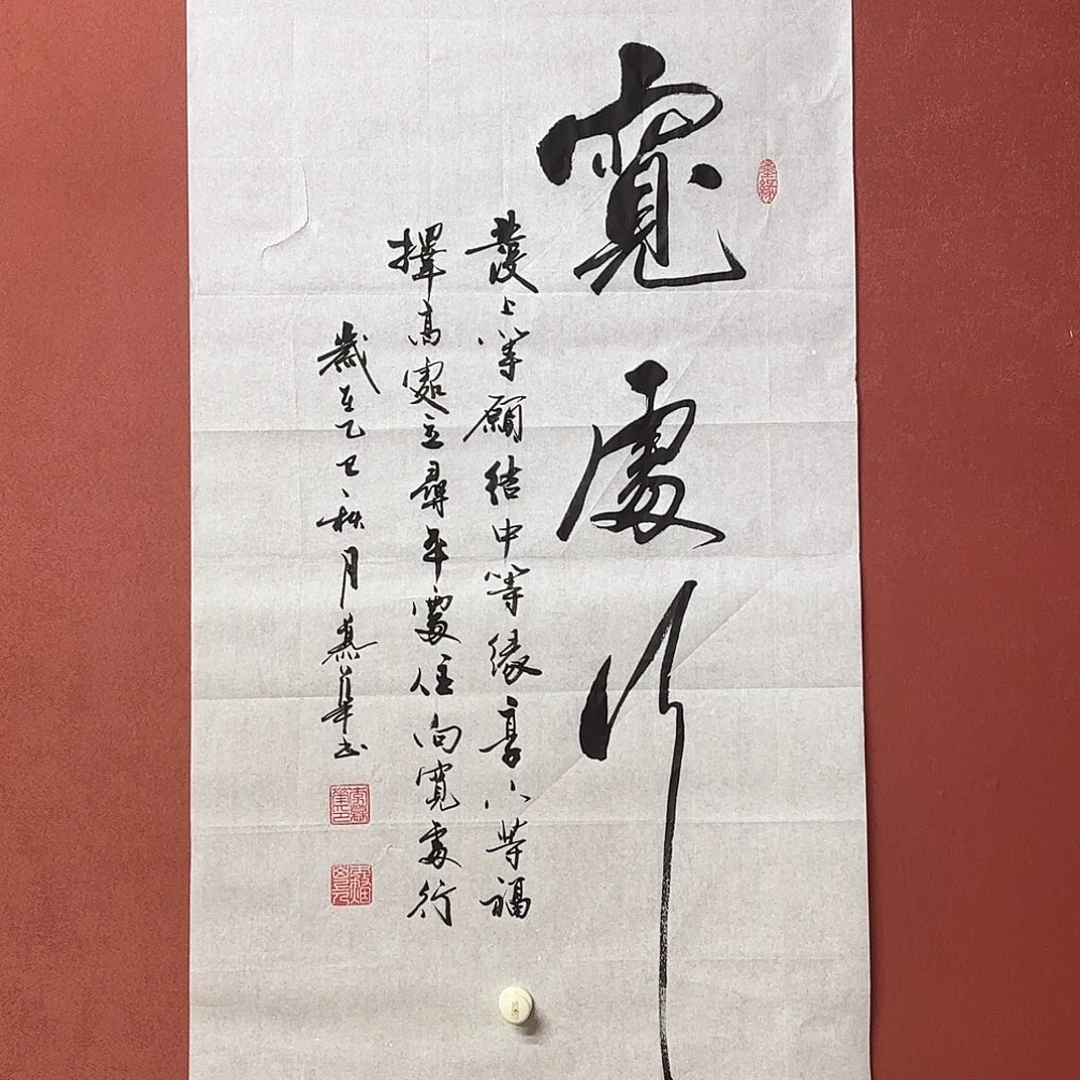 寬處行
發上等願結中等緣享下等福
擇高處立尋平處住向寬處行
歲在乙巳秋月慕華书